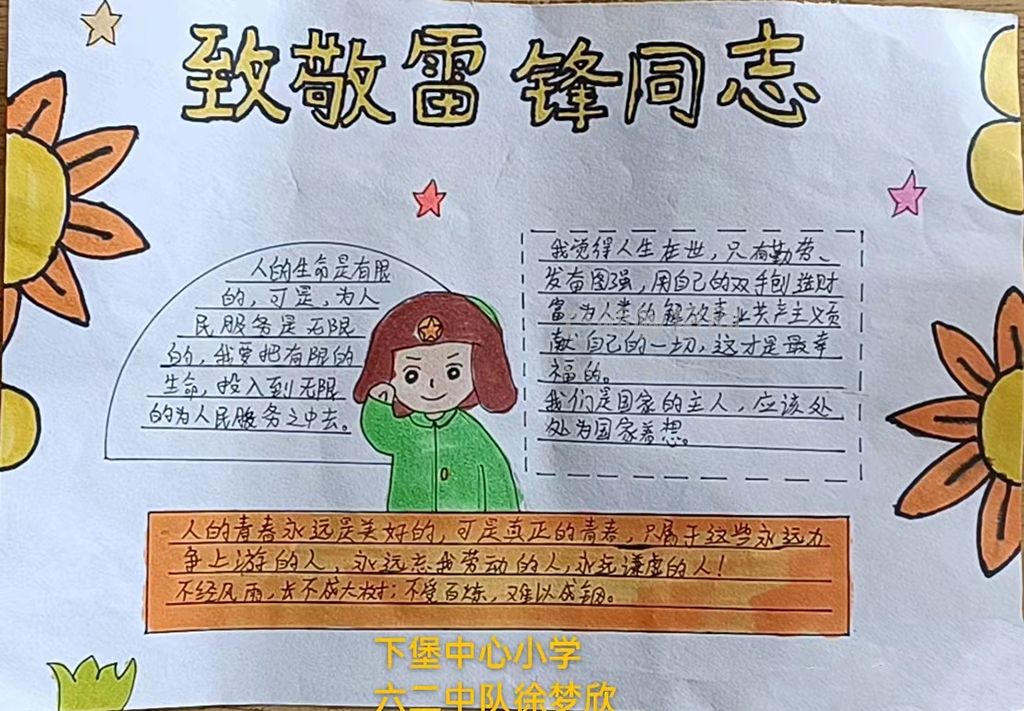 致敬雷锋同志
人的生命是有限
的，可是，为人
民服务是无限
的，我要把有限的
生命，投入到无限
的为人民服务之中去。
我觉得人生在世，只有勤劳、
发奋图强，用自己的双手创造财
富，为人类的解放事业共产主义贡
献自己的一切，这才是最幸
福的。
我们是国家的主人，应该处
处为国家着想。
人的青春永远是美好的，可是真正的青春，只属于这些永远力
争上游的人，永远忘我劳动的人，永远谦虚的人！
不经风雨，长不成大树；不受百炼，难以成钢。
下堡中心小学
六二中队徐梦欣